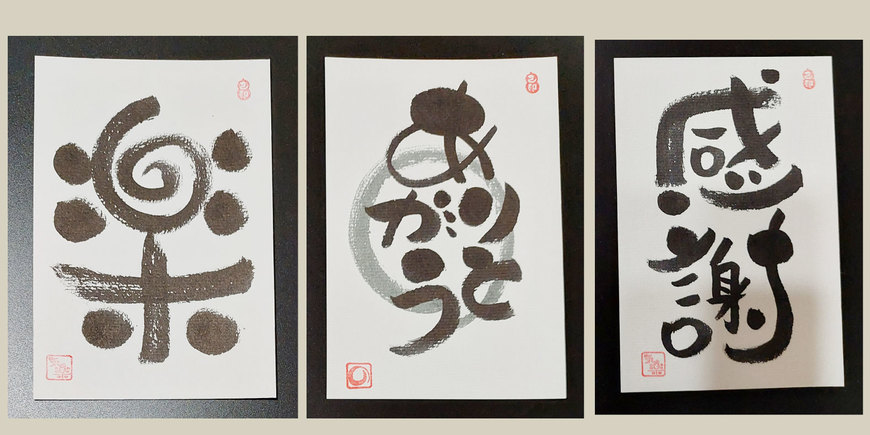 楽
ありがとう
感謝